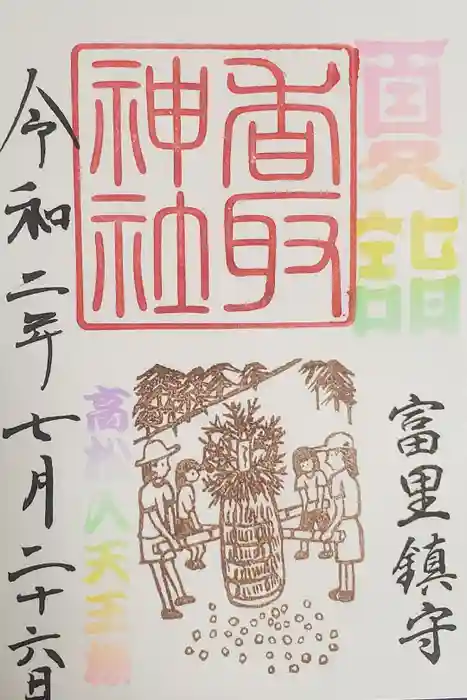 夏詣
香取
神社
富里鎮守
高松 八天王様
令和二年七月二十六日